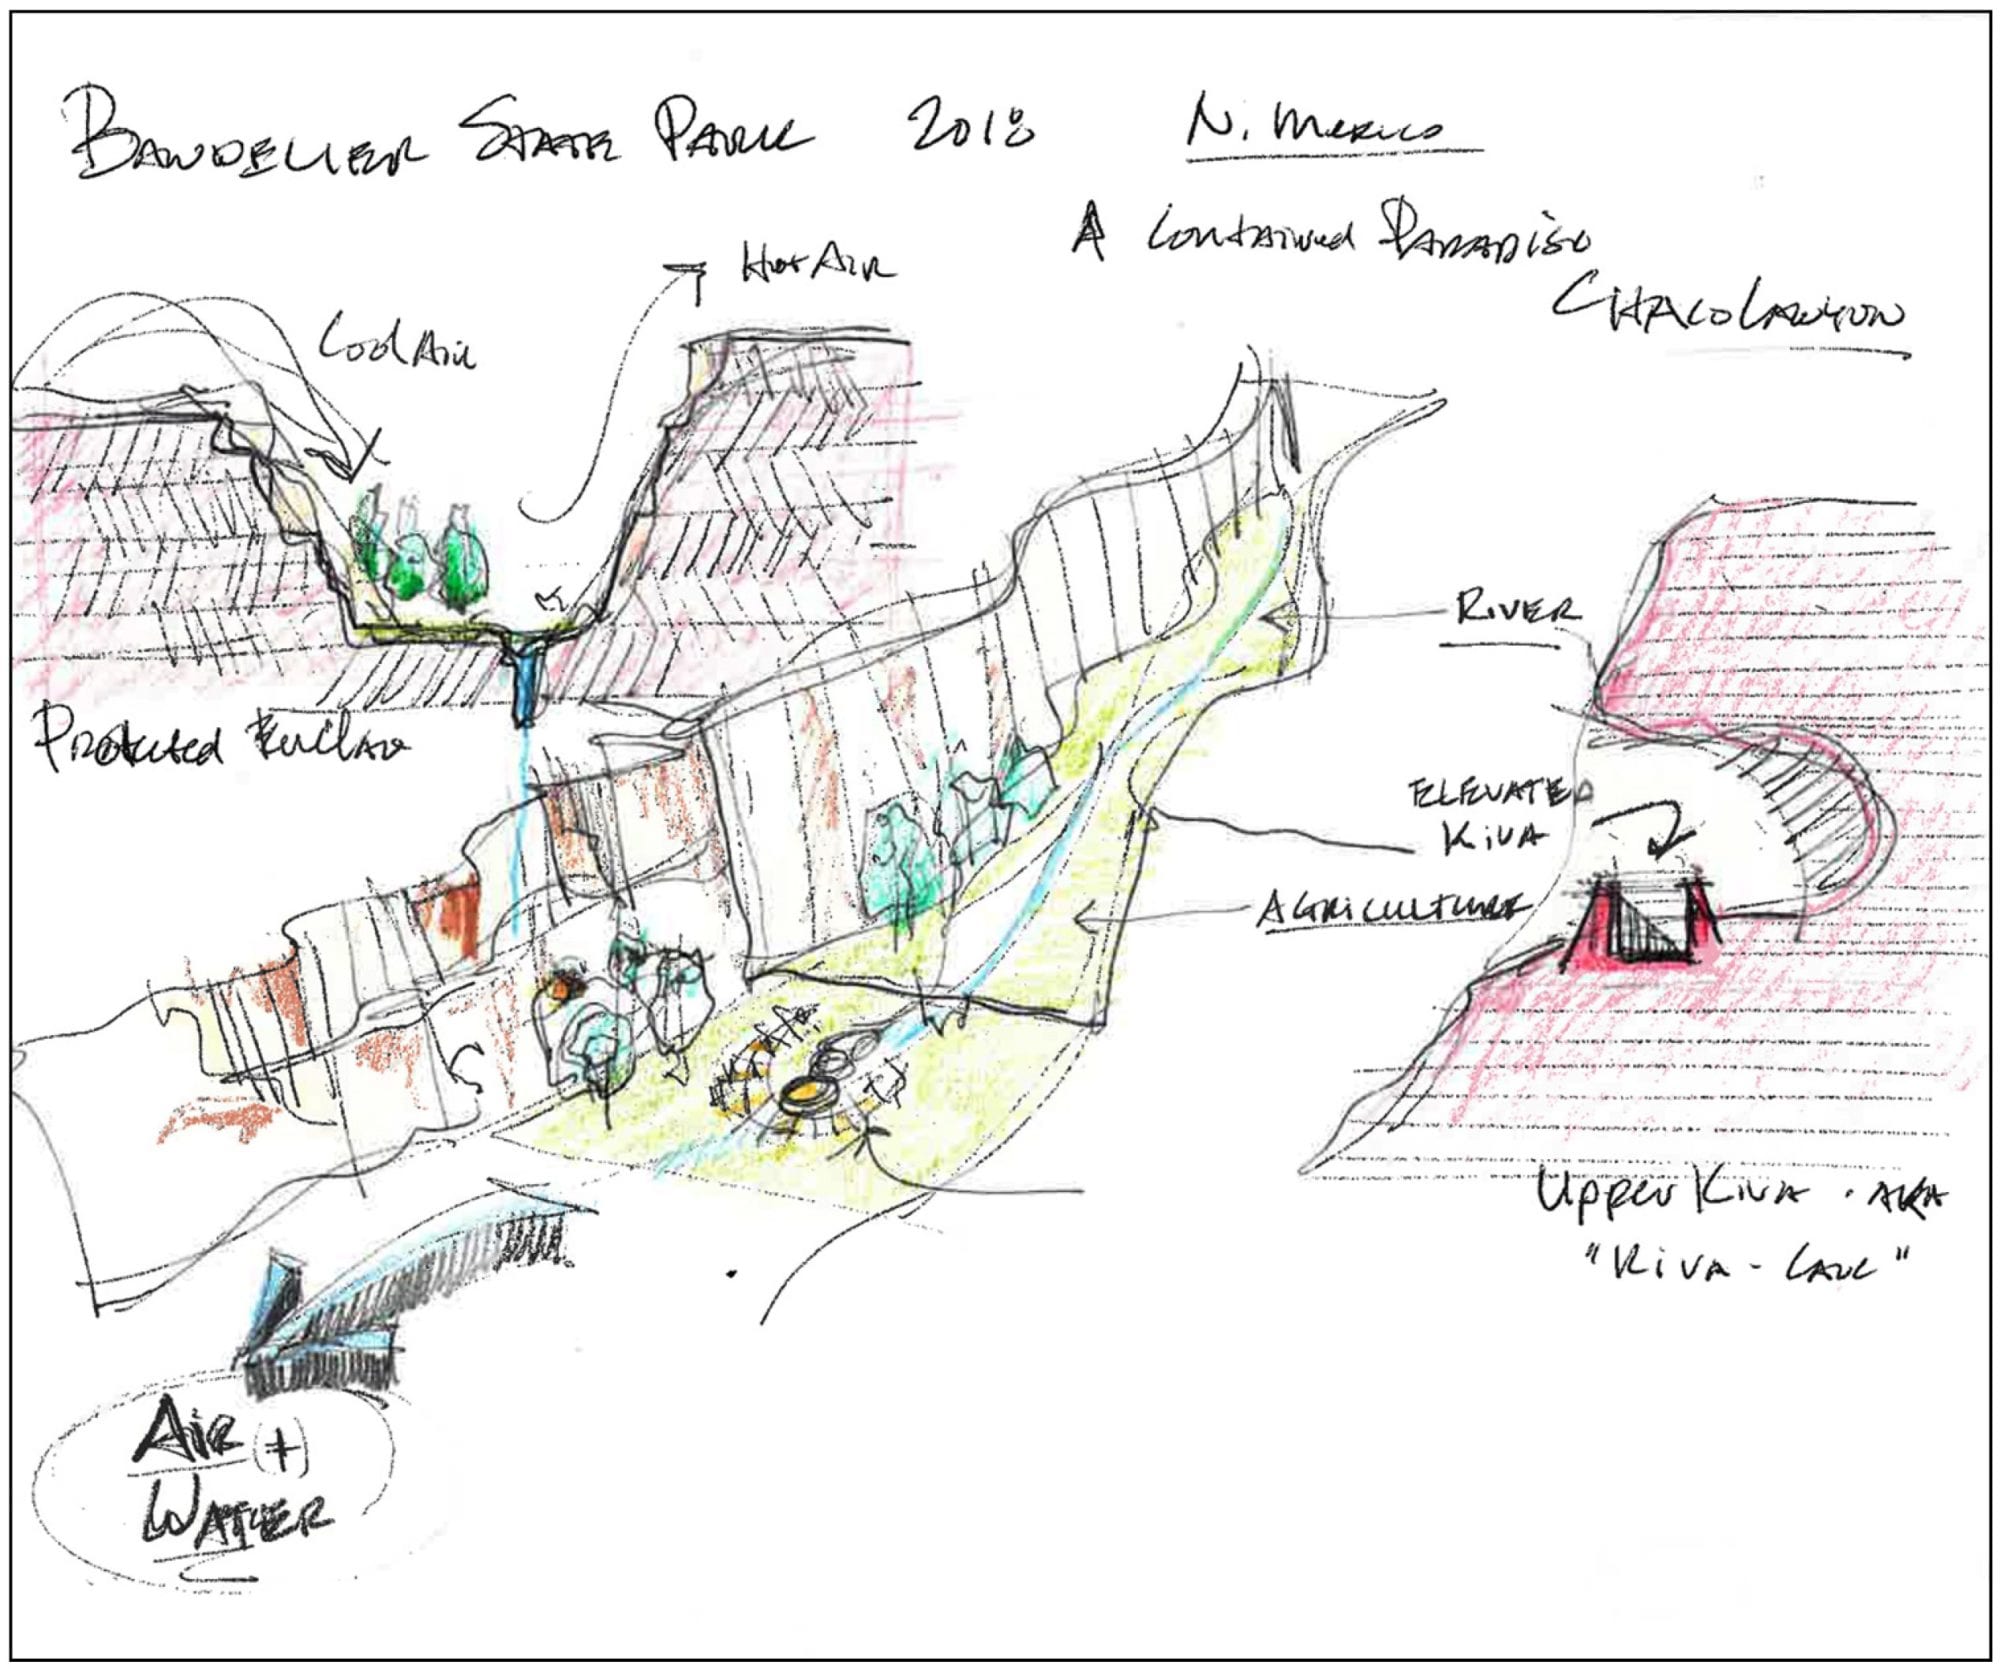 BANDELIER STATE PARK 2018 N. MEXICO
A Contained PARADISO
CHACO CANYON
Hot AIR
Cool AIR
RIVER
Protected Enclave
ELEVATED
KIVA
AGRICULTURE
Upper KIVA . AKA
"KIVA - CAVE"
AIR (+)
WATER